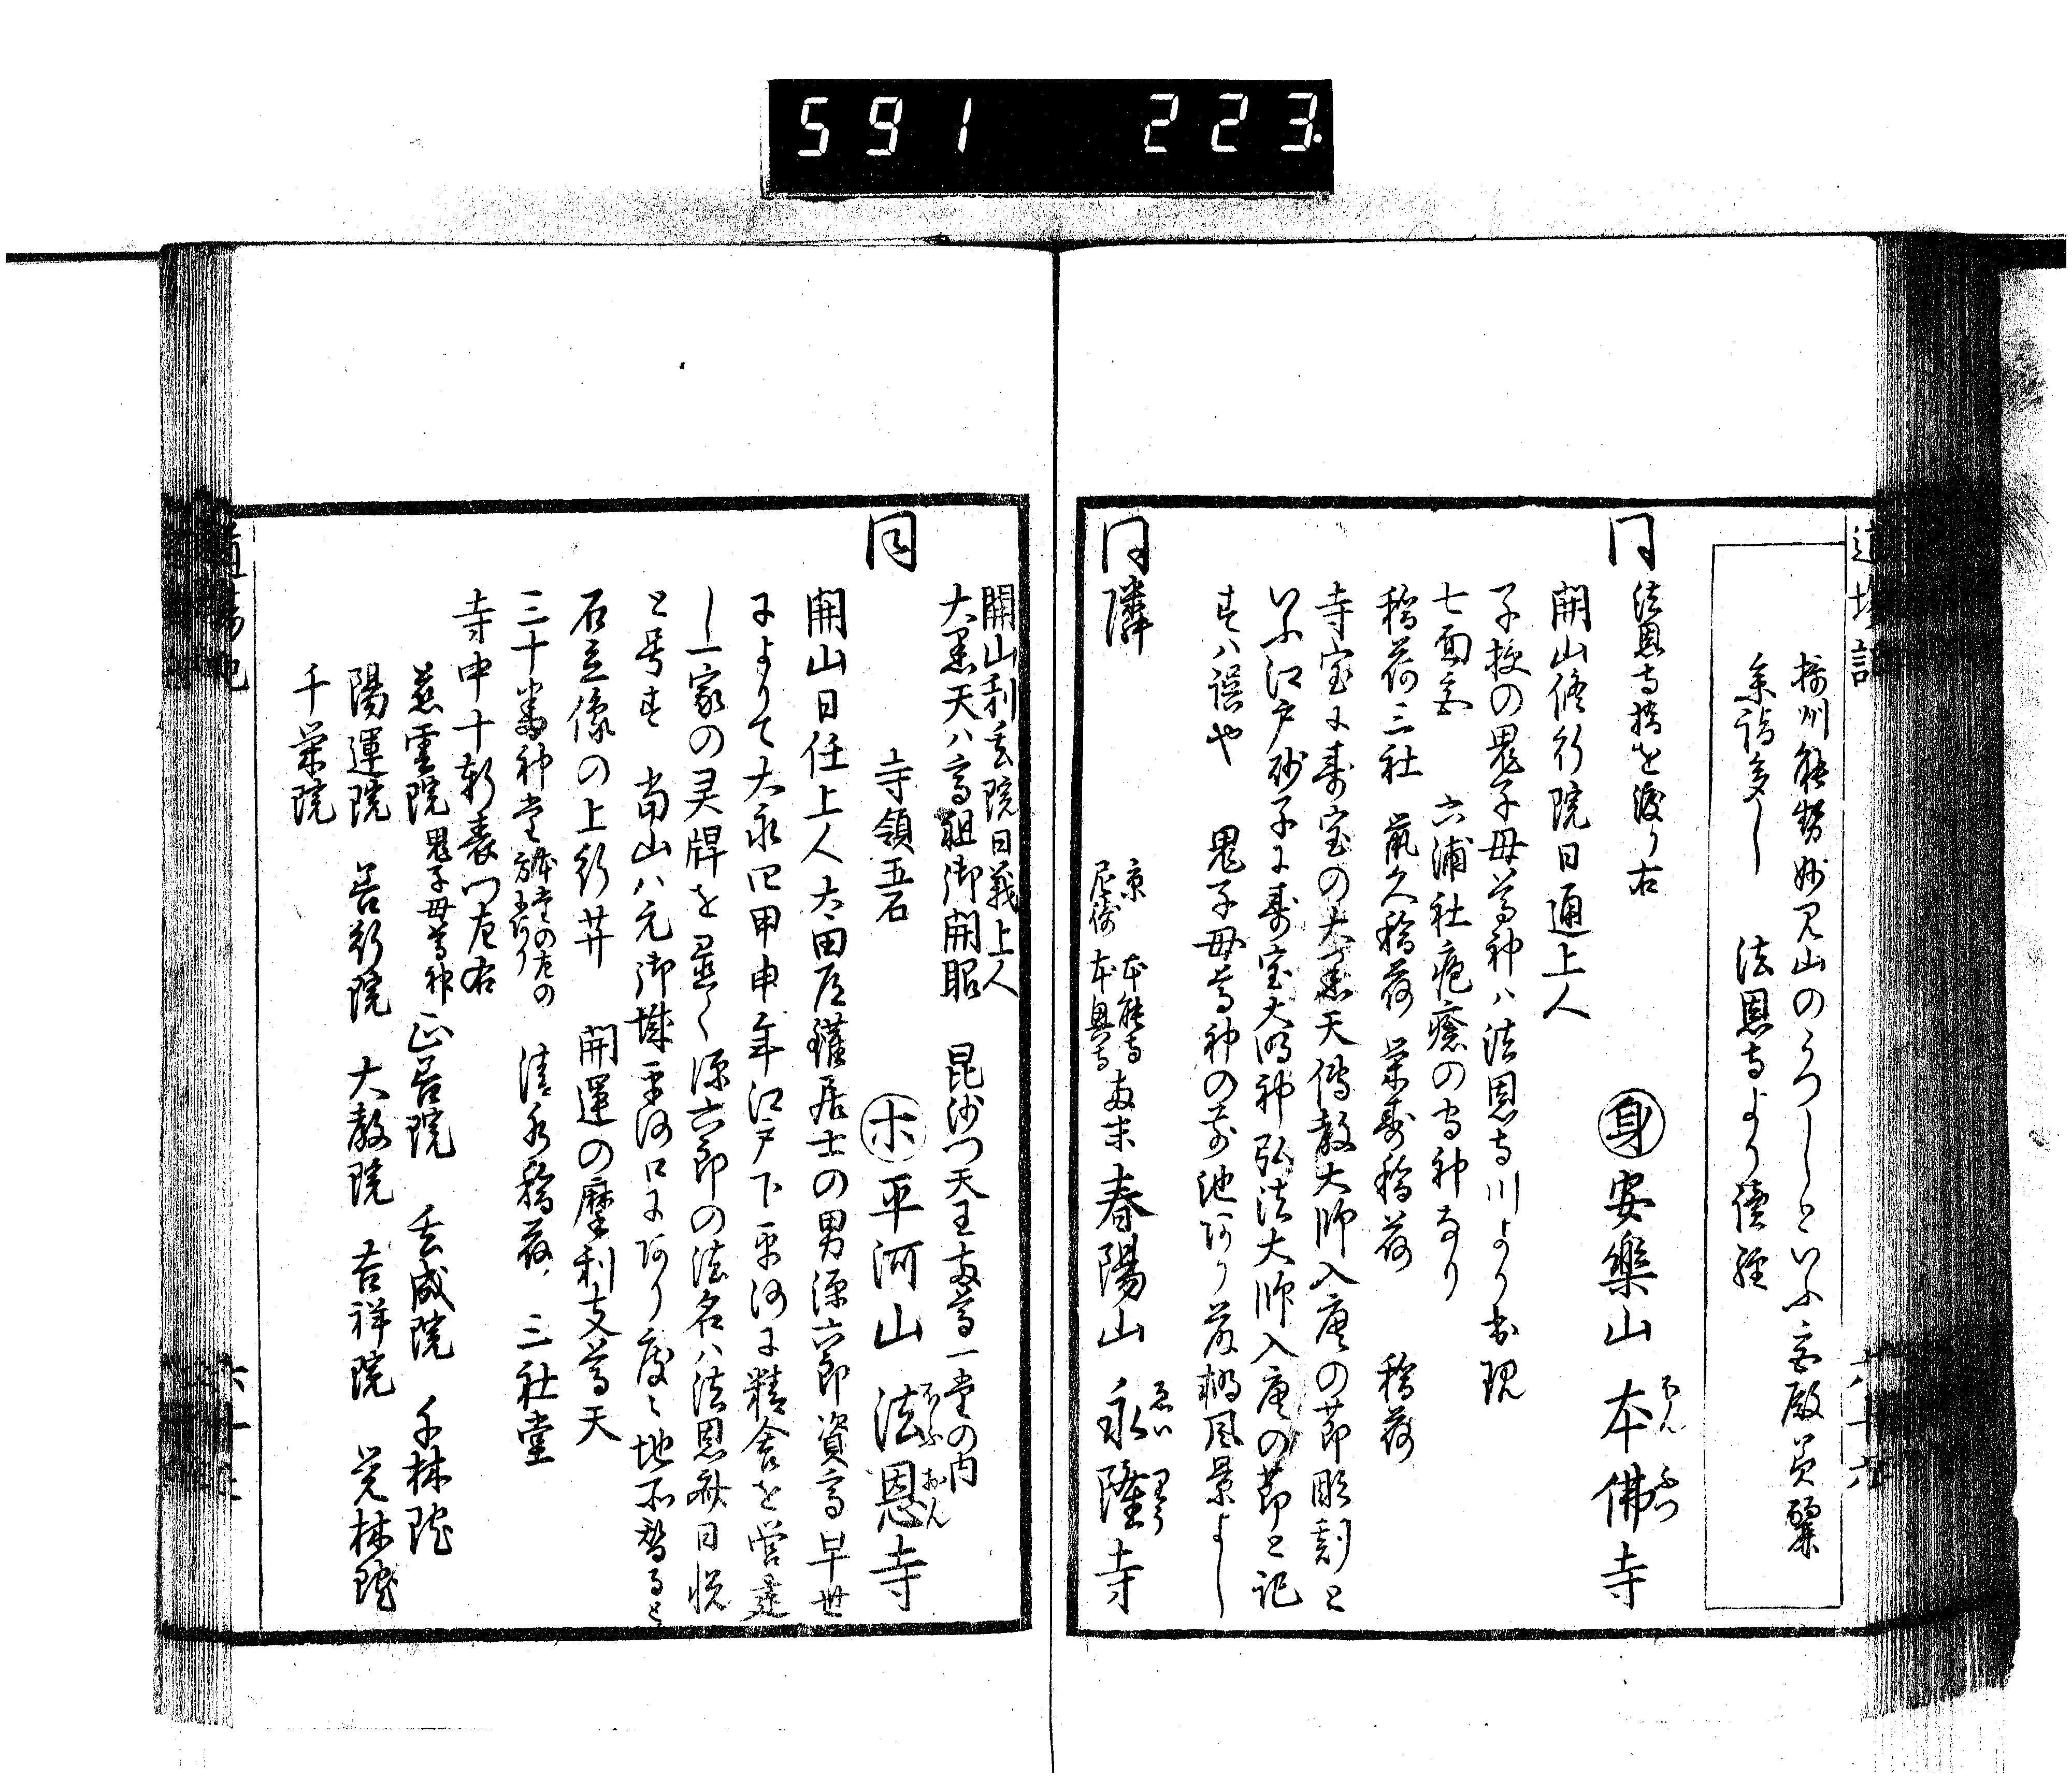 591 223
摂州能勢妙見山のうつしといふ 宮殿美麗
参詣多し 法恩寺より續経
同 法恩寺橋を渡り右 身 安樂山 本佛寺
ほん ぶつ
開山修行院日通上人
子授の鬼子母尊神ハ法恩寺川より出現
七面宮 六浦社疱瘡の守神なり
稲荷三社 瘡久稲荷 栄壽稲荷 稲荷
寺宝に壽宝の大黒天傳教大師入唐の節彫刻と
いふ江戸砂子に壽宝大明神弘法大師入唐の節と記
すハ誤や 鬼子母尊神の前池あり 藤棚風景よし
同隣 京 本能寺 尼崎 本興寺 両末 春陽山 永隆寺
ゑい りう
開山利玄院日義上人
大黒天ハ高祖御開眼 昆沙門天王両尊一堂の内
同 寺領五石 ホ 平河山 法恩寺
ほふ おん
開山日住上人太田道灌居士の男源六郎資高早世
によりて大永四甲申年江戸下平河に精舎を営建
し一家の灵牌を置く源六郎の法名ハ法恩斎日悦
と号す 當山ハ元御城平河口にあり 度々地所替ると
石立像の上行菩 開運の摩利支尊天
三十番神堂 本堂の左の方にあり 清水稲荷 三社堂
寺中十軒表門左右
慈雲院 鬼子母尊神 正善院 玄成院 千林院
陽運院 善行院 大教院 吉祥院 覚林院
千栄院